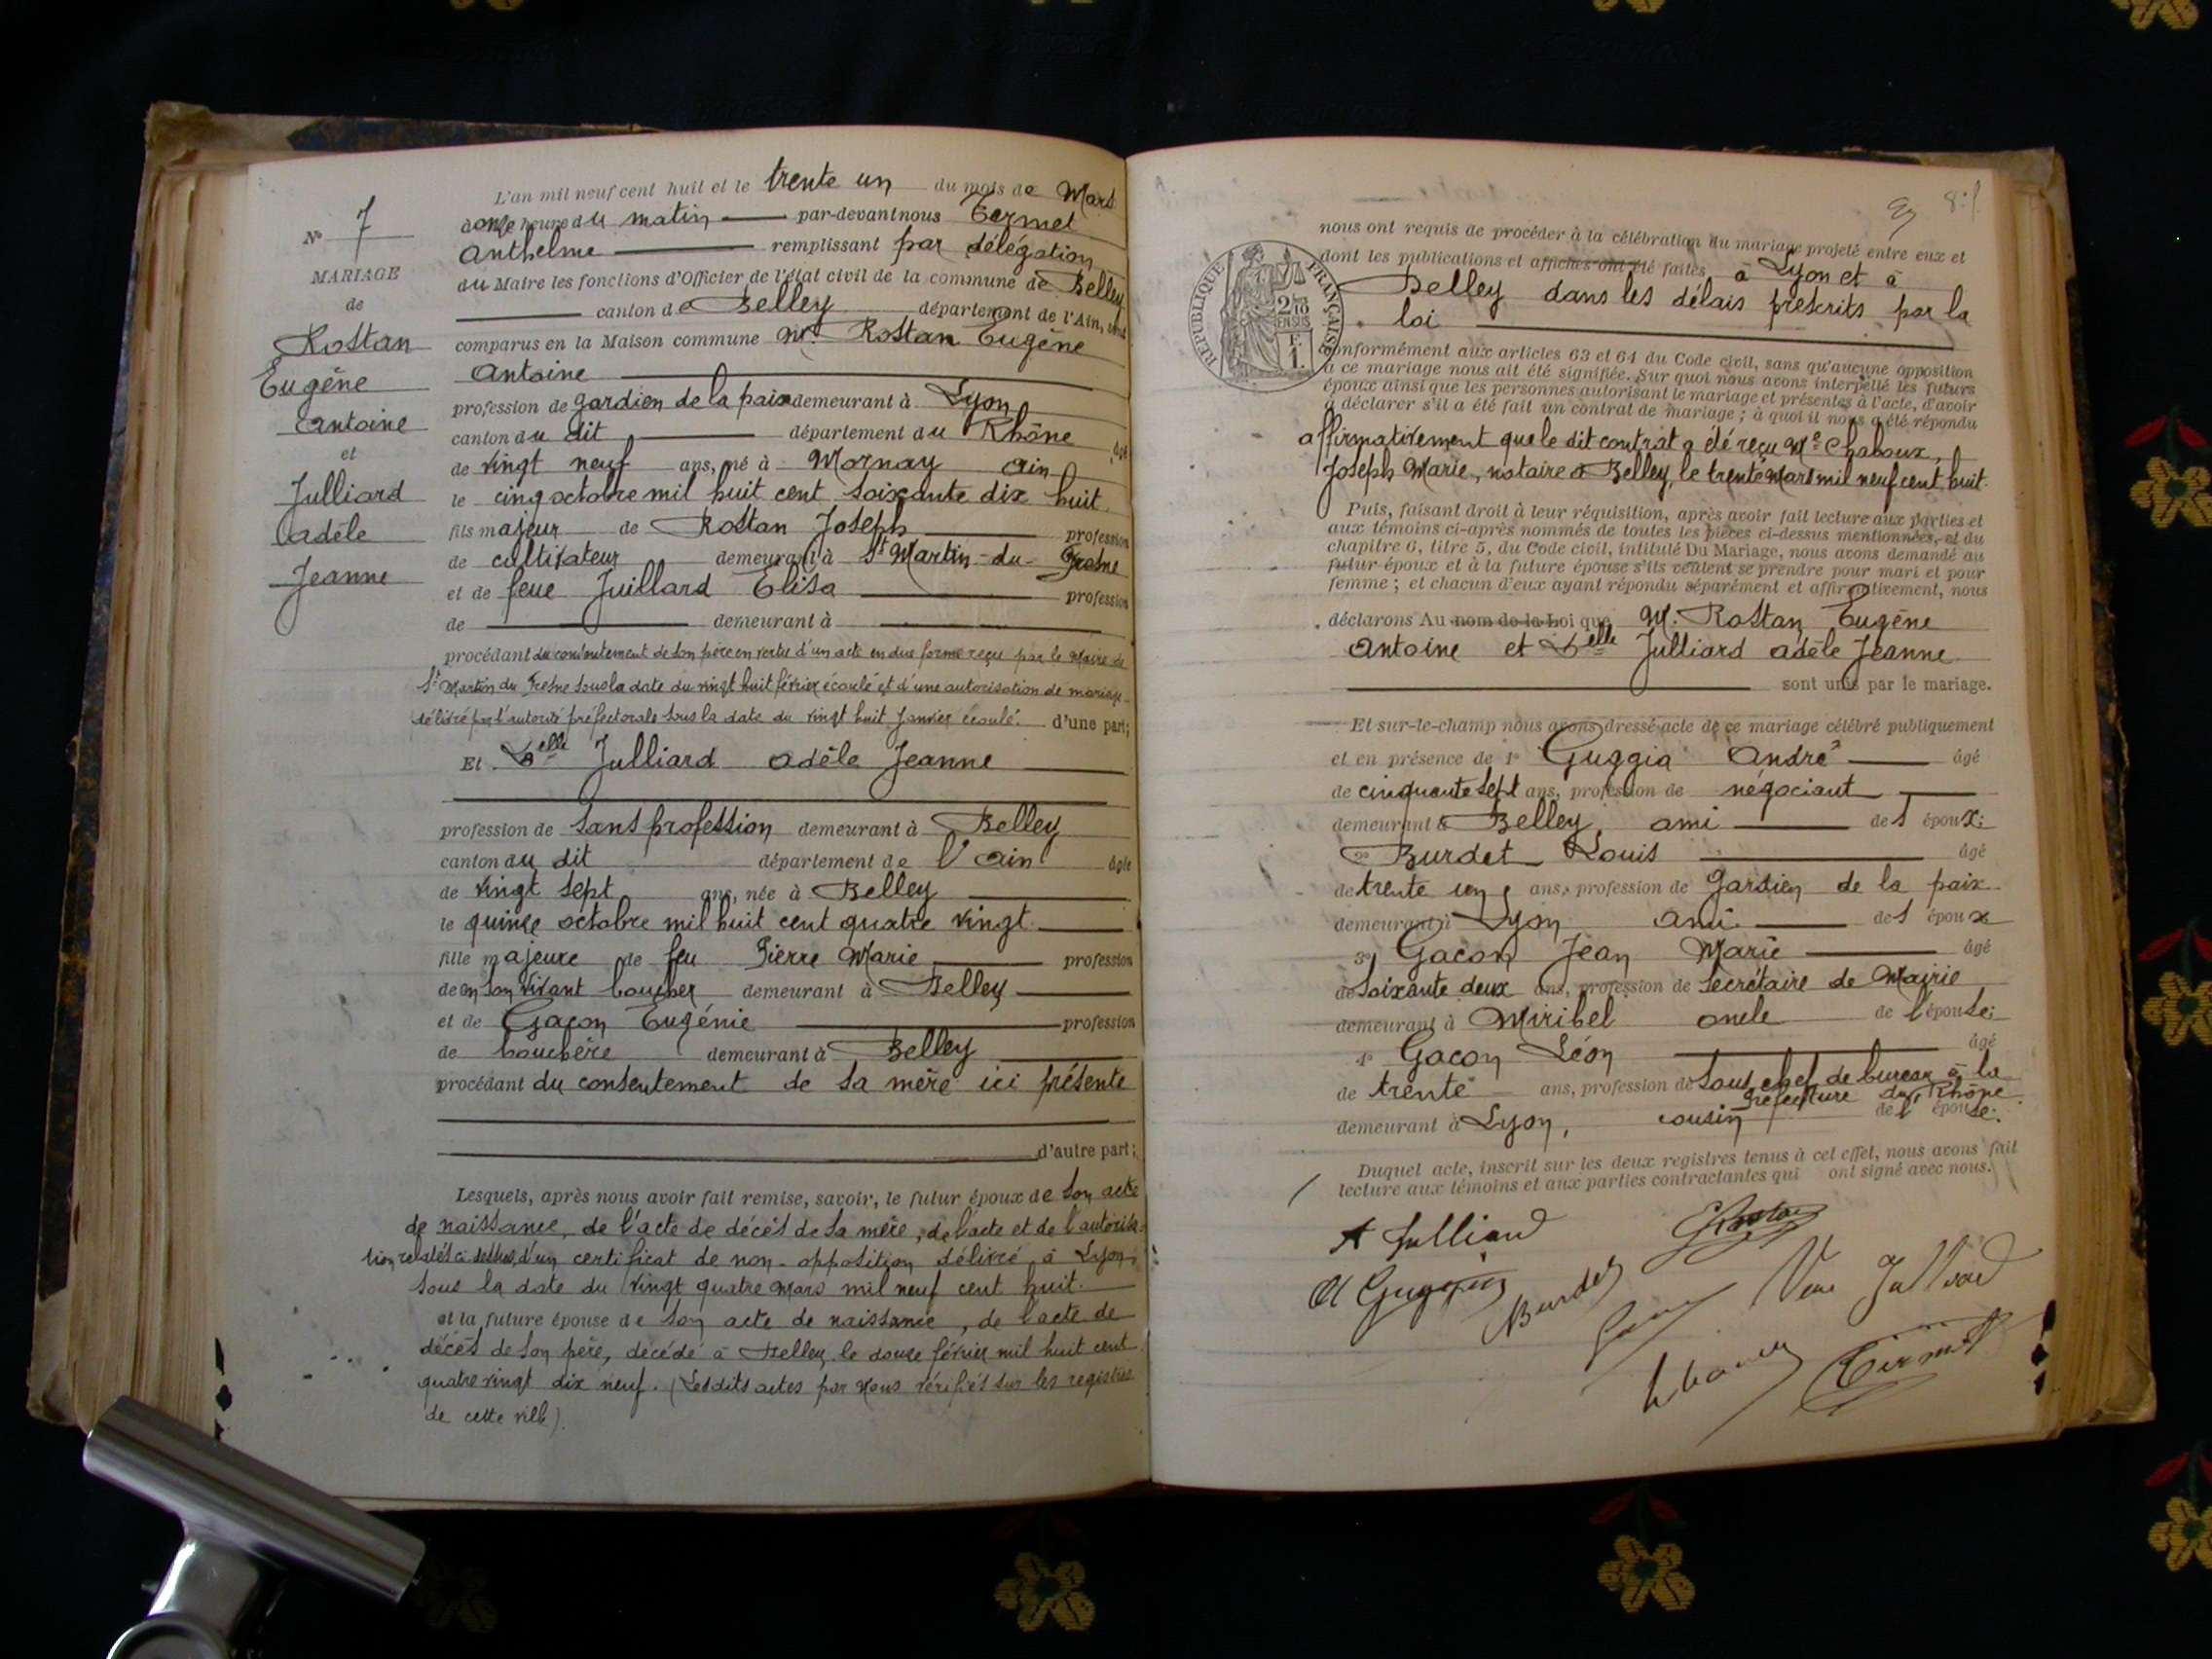 L'an mil neuf cent huit et le trente un du mois de Mars
à onze heure du matin par-devant nous Termet
Anthelme remplissant par délégation
du Maire les fonctions d'Officier de l'état civil de la commune de Belley
canton de Belley département de l'Ain, sont
comparus en la Maison commune Mr. Rostan Eugène
Antoine
profession de gardien de la paix demeurant à Lyon
canton du dit département du Rhône âgé
de vingt neuf ans, né à Mornay Ain
le cinq octobre mil huit cent soixante dix huit
fils majeur de Rostan Joseph profession
de cultivateur demeurant à St Martin-du-Fresne
et de feue Juillard Elisa profession
de demeurant à
procédant du consentement de son père en vertu d'un acte en due forme reçu par le Maire de
St Martin du Fresne sous la date du vingt huit février écoulé et d'une autorisation de mariage
délivré par l'autorité préfectorale sous la date du vingt huit Janvier écoulé. d'une part;
Et Delle Julliard Adèle Jeanne
profession de sans profession demeurant à Belley
canton du dit département de l'Ain âgée
de vingt sept ans, née à Belley
le quinze octobre mil huit cent quatre vingt
fille majeure de feu Pierre Marie profession
de en son vivant boucher demeurant à Belley
et de Gacon Eugénie profession
de bouchère demeurant à Belley
procédant du consentement de sa mère ici présente
d'autre part;
Lesquels, après nous avoir fait remise, savoir, le futur époux de son acte
de naissance, de l'acte de décès de sa mère, de l'acte et de l'autorisa-
tion relatés ci dessus, d'un certificat de non-opposition délivré à Lyon
sous la date du vingt quatre Mars mil neuf cent huit.
et la future épouse de son acte de naissance, de l'acte de
décès de son père, décédé à Belley le douze février mil huit cent
quatre vingt dix neuf. (Lesdits actes par Nous vérifiés sur les registres
de cette ville).
No 7
MARIAGE
de
Rostan
Eugène
Antoine
et
Julliard
Adèle
Jeanne
8
nous ont requis de procéder à la célébration du mariage projeté entre eux et
dont les publications et affiches ont été faites à Lyon et à
Belley dans les délais prescrits par la
loi
RÉPUBLIQUE FRANÇAISE
2/10
EN SUS
F.
1.
conformément aux articles 63 et 64 du Code civil, sans qu'aucune opposition
à ce mariage nous ait été signifiée. Sur quoi nous avons interpellé les futurs
époux ainsi que les personnes autorisant le mariage et présentes à l'acte, d'avoir
à déclarer s'il a été fait un contrat de mariage; à quoi il nous a été répondu
affirmativement que le dit contrat a été reçu Me Chaboux,
Joseph Marie, notaire à Belley, le trente Mars mil neuf cent huit.
Puis, faisant droit à leur réquisition, après avoir fait lecture aux parties et
aux témoins ci-après nommés de toutes les pièces ci-dessus mentionnées, et du
chapitre 6, titre 5, du Code civil, intitulé Du Mariage, nous avons demandé au
futur époux et à la future épouse s'ils veulent se prendre pour mari et pour
femme; et chacun d'eux ayant répondu séparément et affirmativement, nous
déclarons Au nom de la Loi que M. Rostan Eugène
Antoine et Delle Julliard Adèle Jeanne
sont unis par le mariage.
Et sur-le-champ nous avons dressé acte de ce mariage célébré publiquement
et en présence de 1º Guggia André âgé
de cinquante sept ans, profession de négociant
demeurant à Belley, ami des époux;
2º Burdet Louis âgé
de trente un ans, profession de gardien de la paix
demeurant à Lyon ami des époux
3º Gacon Jean Marie âgé
de soixante deux ans, profession de secrétaire de Mairie
demeurant à Miribel oncle de l'épouse;
4º Gacon Léon âgé
de trente ans, profession de sous chef de bureau à la
Préfecture du Rhône
demeurant à Lyon, cousin de l'épouse.
Duquel acte, inscrit sur les deux registres tenus à cet effet, nous avons fait
lecture aux témoins et aux parties contractantes qui ont signé avec nous.
A Julliard
E Rostan
A Guggia
Burdet
Vve Julliard
Termet